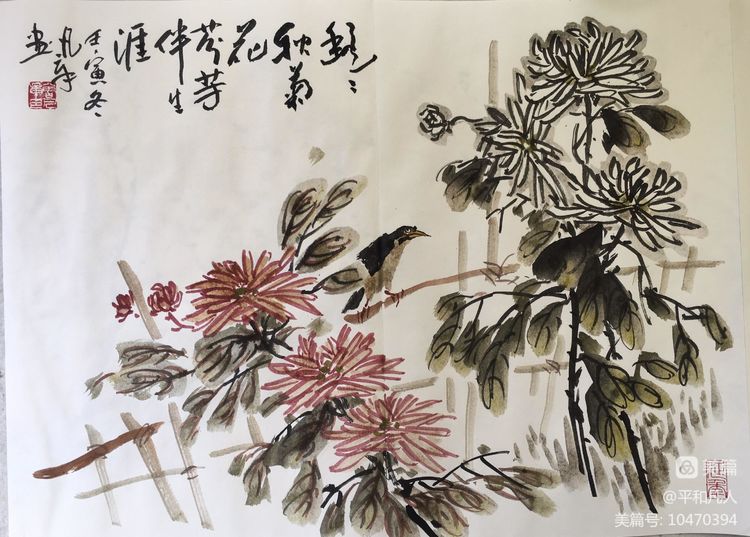 秋菊
花
芬芳
伴生
涯
壬寅冬
凡
画
美篇
@平和凡人
美篇号: 10470394